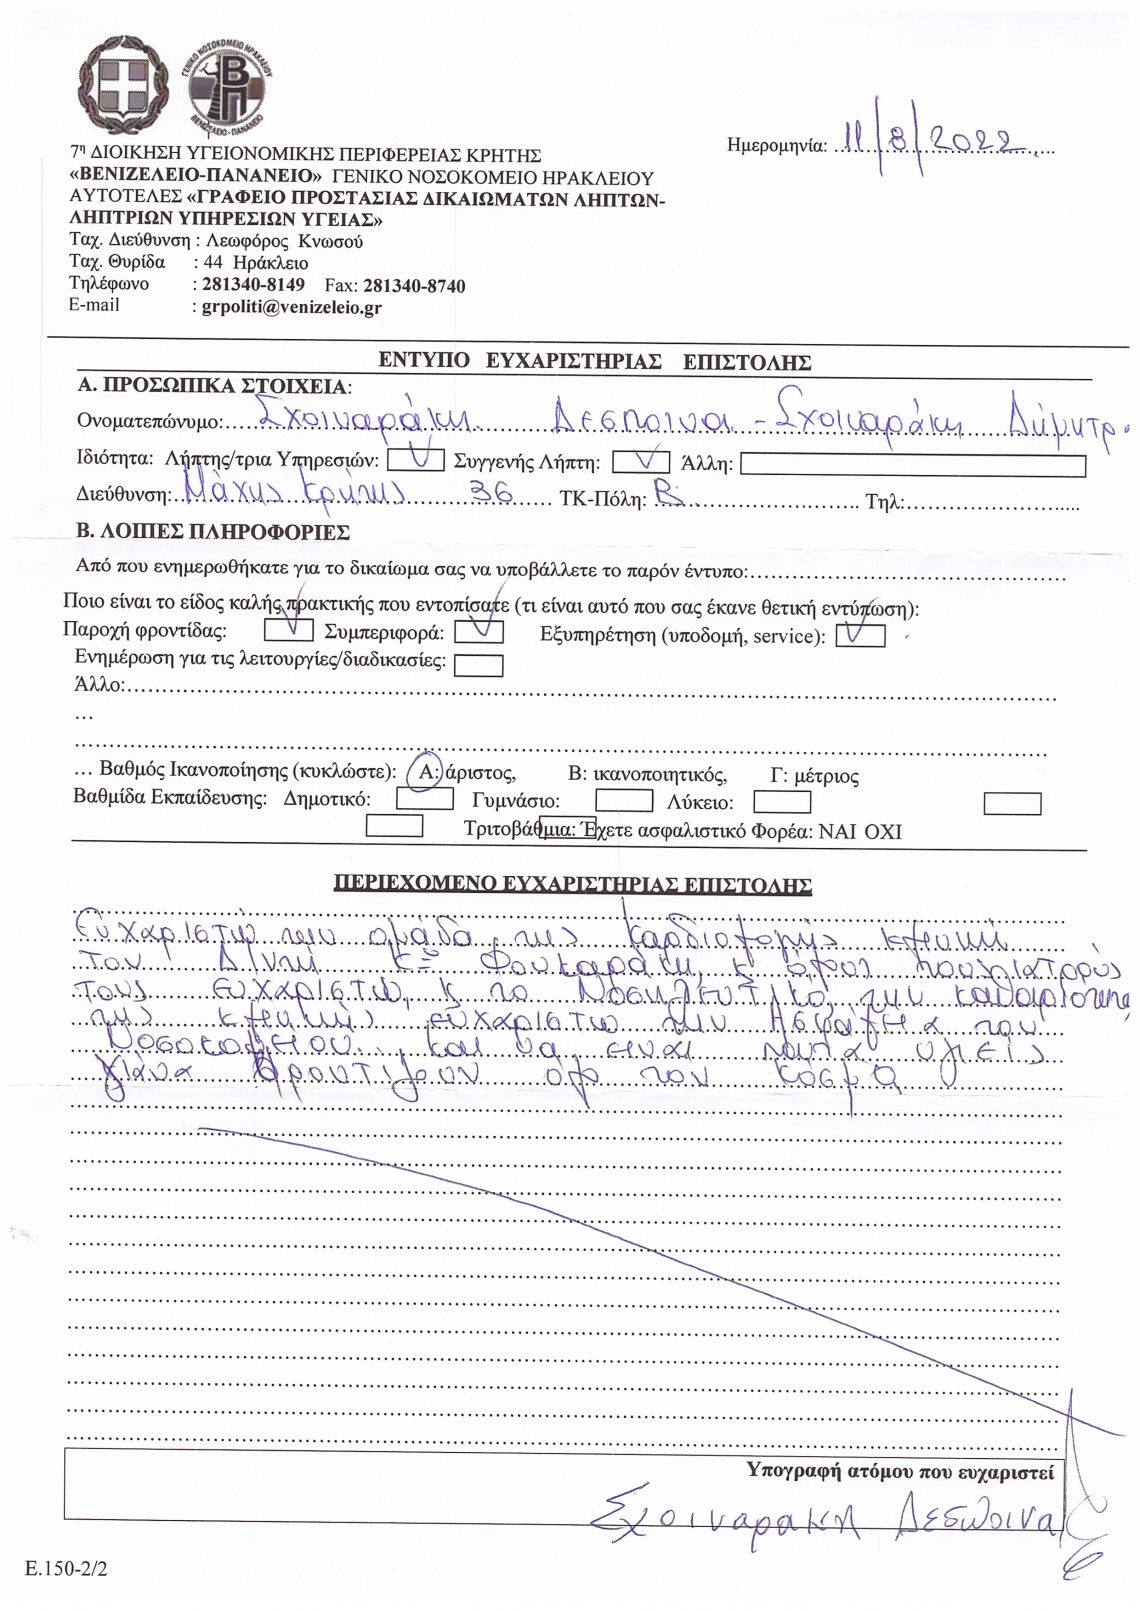 ΓΕΝΙΚΟ ΝΟΣΟΚΟΜΕΙΟ ΗΡΑΚΛΕΙΟΥ
ΒΕΝΙΖΕΛΕΙΟ-ΠΑΝΑΝΕΙΟ
7η ΔΙΟΙΚΗΣΗ ΥΓΕΙΟΝΟΜΙΚΗΣ ΠΕΡΙΦΕΡΕΙΑΣ ΚΡΗΤΗΣ
Ημερομηνία: 11/8/2022
«ΒΕΝΙΖΕΛΕΙΟ-ΠΑΝΑΝΕΙΟ» ΓΕΝΙΚΟ ΝΟΣΟΚΟΜΕΙΟ ΗΡΑΚΛΕΙΟΥ
ΑΥΤΟΤΕΛΕΣ «ΓΡΑΦΕΙΟ ΠΡΟΣΤΑΣΙΑΣ ΔΙΚΑΙΩΜΑΤΩΝ ΛΗΠΤΩΝ-
ΛΗΠΤΡΙΩΝ ΥΠΗΡΕΣΙΩΝ ΥΓΕΙΑΣ»
Ταχ. Διεύθυνση : Λεωφόρος Κνωσού
Ταχ. Θυρίδα : 44 Ηράκλειο
Τηλέφωνο : 281340-8149 Fax: 281340-8740
E-mail : grpoliti@venizeleio.gr
ΕΝΤΥΠΟ ΕΥΧΑΡΙΣΤΗΡΙΑΣ ΕΠΙΣΤΟΛΗΣ
Α. ΠΡΟΣΩΠΙΚΑ ΣΤΟΙΧΕΙΑ:
Ονοματεπώνυμο: Σχοιναράκη Δεσποινα - Σχοιναράκη Δήμητρ.
Ιδιότητα: Λήπτης/τρια Υπηρεσιών: Συγγενής Λήπτη: Άλλη:
Διεύθυνση: Μάχης Κρήτης 36 ΤΚ-Πόλη: Β. Τηλ:
Β. ΛΟΙΠΕΣ ΠΛΗΡΟΦΟΡΙΕΣ
Από που ενημερωθήκατε για το δικαίωμα σας να υποβάλλετε το παρόν έντυπο:
Ποιο είναι το είδος καλής πρακτικής που εντοπίσατε (τι είναι αυτό που σας έκανε θετική εντύπωση):
Παροχή φροντίδας: Συμπεριφορά: Εξυπηρέτηση (υποδομή, service):
Ενημέρωση για τις λειτουργίες/διαδικασίες:
Άλλο:
...
... Βαθμός Ικανοποίησης (κυκλώστε): Α: άριστος, Β: ικανοποιητικός, Γ: μέτριος
Βαθμίδα Εκπαίδευσης: Δημοτικό: Γυμνάσιο: Λύκειο:
Τριτοβάθμια: Έχετε ασφαλιστικό Φορέα: ΝΑΙ ΟΧΙ
ΠΕΡΙΕΧΟΜΕΝΟ ΕΥΧΑΡΙΣΤΗΡΙΑΣ ΕΠΙΣΤΟΛΗΣ
Ευχαριστώ την ομάδα της Καρδιολογής κλινική
Τον κ όλοι
τους ευχαριστώ, κ το Νοσηλευτικό, την καθαριστης
της κλινικής ευχαριστώ την Ασφάλεια του
Νοσοκομειου. και να ειναι παντα υγιείς
γιανα Φροντιζουν ολο τον κοσμο
Υπογραφή ατόμου που ευχαριστεί
Σχοιναρακη Δεσποινα
Ε.150-2/2